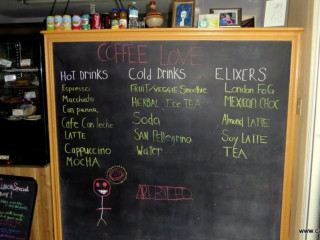 COFFEE LOVE
HOT DRINKS
Espresso
Macchiato
Con panna
Cafe Con leche
LATTE
Cappuccino
MOCHA
Cold Drinks
FRUIT/VEGGIE Smoothie
HERBAL Ice TEA
Soda
SAN Pellegrino
Water
ELIXERS
London FoG
MEXICAN CHOC
Almond LATTE
Soy LATTE
TEA